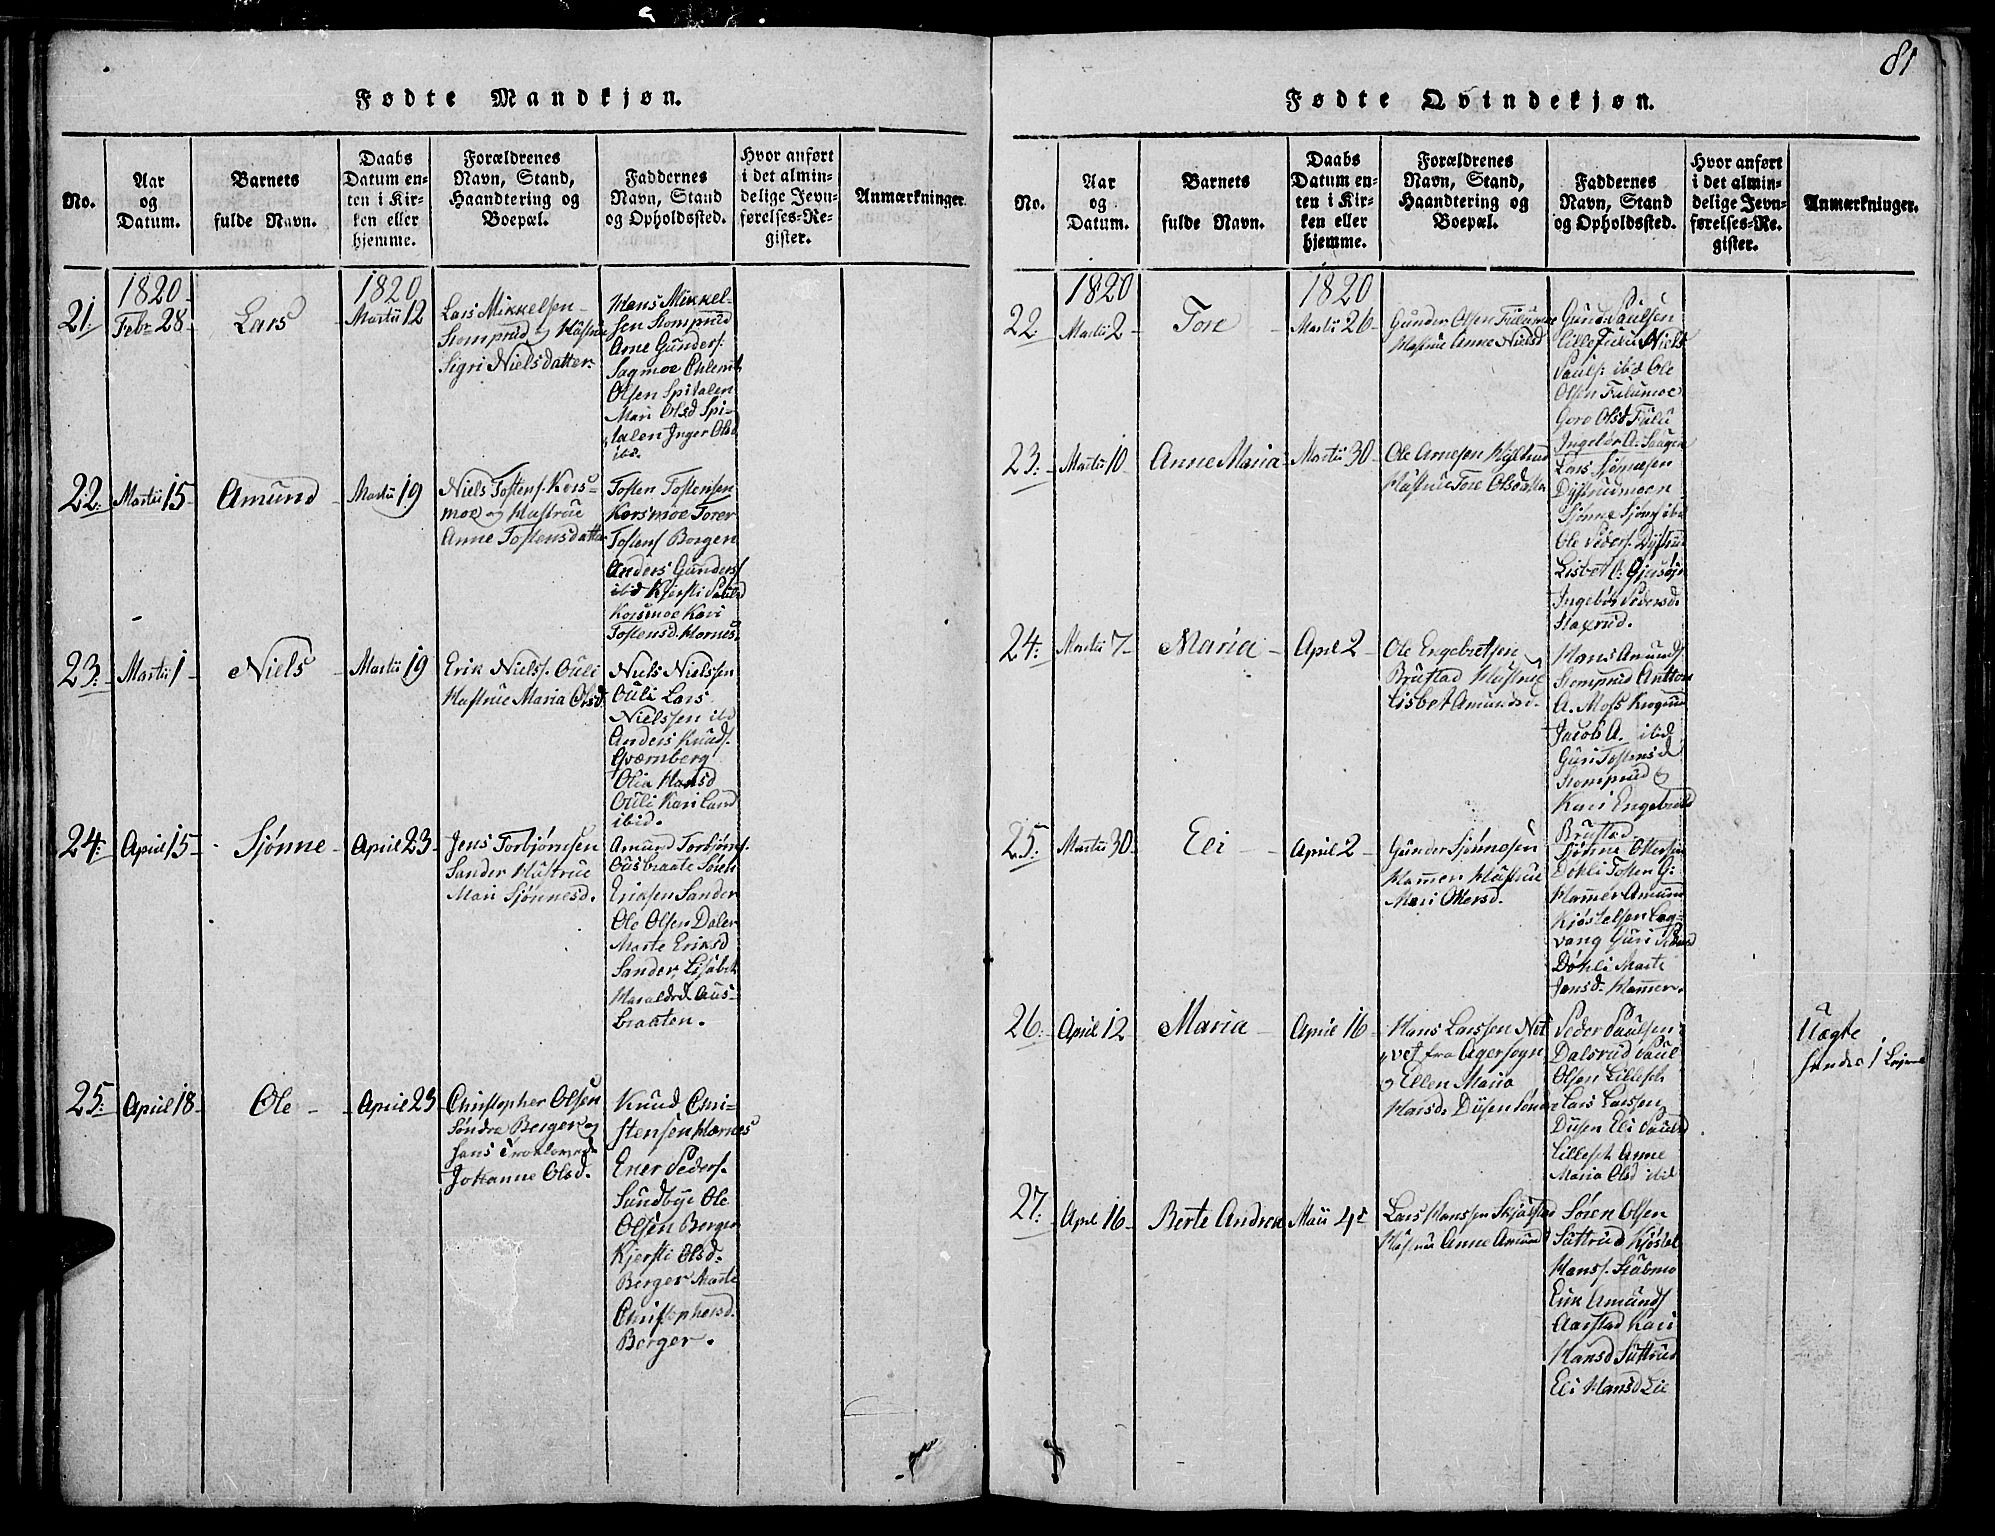 81
Fødte Mandkjøn.
No.
Aar
og
Datum.
Barnets
fulde Navn.
Daabs
Datum en-
ten i Kir-
ken eller
hjemme.
Forældrenes
Navn, Stand,
Haandtering og
Boepæl.
Faddernes
Navn, Stand
og Opholdssted.
Hvor anført
i det almin-
delige Jevn-
førelses-Re-
gister.
Anmærkninger.
21.
1820
Febr 28
Lars
1820
Martii 12
Lars Mikkelsen
Stomprud og Hustrue
Sigri Nielsdatter
Hans Mikkel-
sen Stomprud
Arne Gunders:
Sagmoe
Olsen Spitalen
Mari Olsd Spi-
talen Inger Olsd
ibd.
22.
Martii 15
Amund
Martii 19
Niels Tostens. Kors-
moe og Hustrue
Anne Tostensdatter
Tosten Tostensen
Korsmoe Torer
Tostens Borgen
Anders Gunders
ibid Kjersti
Korsmoe Kari
Tostensd. Hornes.
23.
Martii 1
Niels
Martii 19
Erik Nielss. Ouli
Hustrue Maria Olsd.
Niels Nielssen
Ouli Lars
Nielssen ibd
Anders Knuds.
Qværnberg
Olia Hansd
Ouli Kari Lund
ibid.
24.
April 15
Sjønne
April 23
Jens Torbjørnsen
Sander Hustrue
Mari Sjønnesd.
Amund Torbjørns.
Ousbraate Søren
Eriksen Sander
Ole Olsen Daler
Marte Eriksd
Sander, Lisabet
Haraldsd. Aus-
braaten.
25.
April 18
Ole
April 23
Christopher Olsen
Søndre Berger og
hans
Johanne Olsd.
Knud Chri-
stensen Hornes
Ener Peders.
Sundbye Ole
Olsen Berger
Kjersti Olsd.
Berger Marte
Christophersd.
Berger.
Fødte Qvindekjøn.
No.
Aar
og
Datum.
Barnets
fulde Navn.
Daabs
Datum en-
ten i Kir-
ken eller
hjemme.
Forældrenes
Navn, Stand,
Haandtering og
Boepæl.
Faddernes
Navn, Stand
og Opholdssted.
Hvor anført
i det almin-
delige Jevn-
førelses-Re-
gister.
Anmærkninger.
22.
1820
Martii 2
Tore
1820
Martii 26
Gunder Olsen Fulumoe
Hustrue Anne Nielsd
Gund: Paulsen
Lille Fulu Niels
Pauls: ibd Ole
Olsen Fulumoe
Goro Olsd Fulu
Ingebor A: Haagen
23.
Martii 10
Anne Maria
Martii 30
Ole Arnesen
Hustrue Tore Olsdatter
Lars Sjønnesen
Dystrudmoen
Sjønne Sjøns ibd
Ole Peders. Dystrud
Lisbet
Ingebor Pedersd.
Haxrud.
24.
Martii 7
Maria
April 2
Ole Engebretsen
Brustad Hustrue
Lisbet Amundsd.
Hans Amunds
Stomprud Anthon
A. Moss Krogsrud
Jacob A. ibd
Guri Tostensd
Stomprud og
Kari Engebretsd
Brustad.
25.
Martii 30
Eli
April 2
Gunder Sjønnesen
Hamer Hustrue
Mari Ottersd.
Sjønne Ottersen
Døhli Tosten G:
Hamer Amund
Kjøstelsen Lag-
vang Guri
Døhli Marte
Jensd. Hamer.
26.
April 12
Maria
April 16
Hans Larssen Net-
vet fra Agersogn
og Ellen Maria
Hansd. Diisen Søndre
Peder Paulsen
Dalsrud Paul
Olsen Lillesch
Lars Larssen
Diisen Eli Paulsd
Lillesch Anne
Maria Olsd ibid
Uægte
hendes 1
27.
April 16
Berte Andrea
Maii 4de
Lars Hanssen
Hustrue Anne Amundsd
Søren Olsen
Suttrud Kjøstel
Hanss.
Erik Amunds
Aarstad Kari
Hansd Suttrud
Eli Hansd Lie